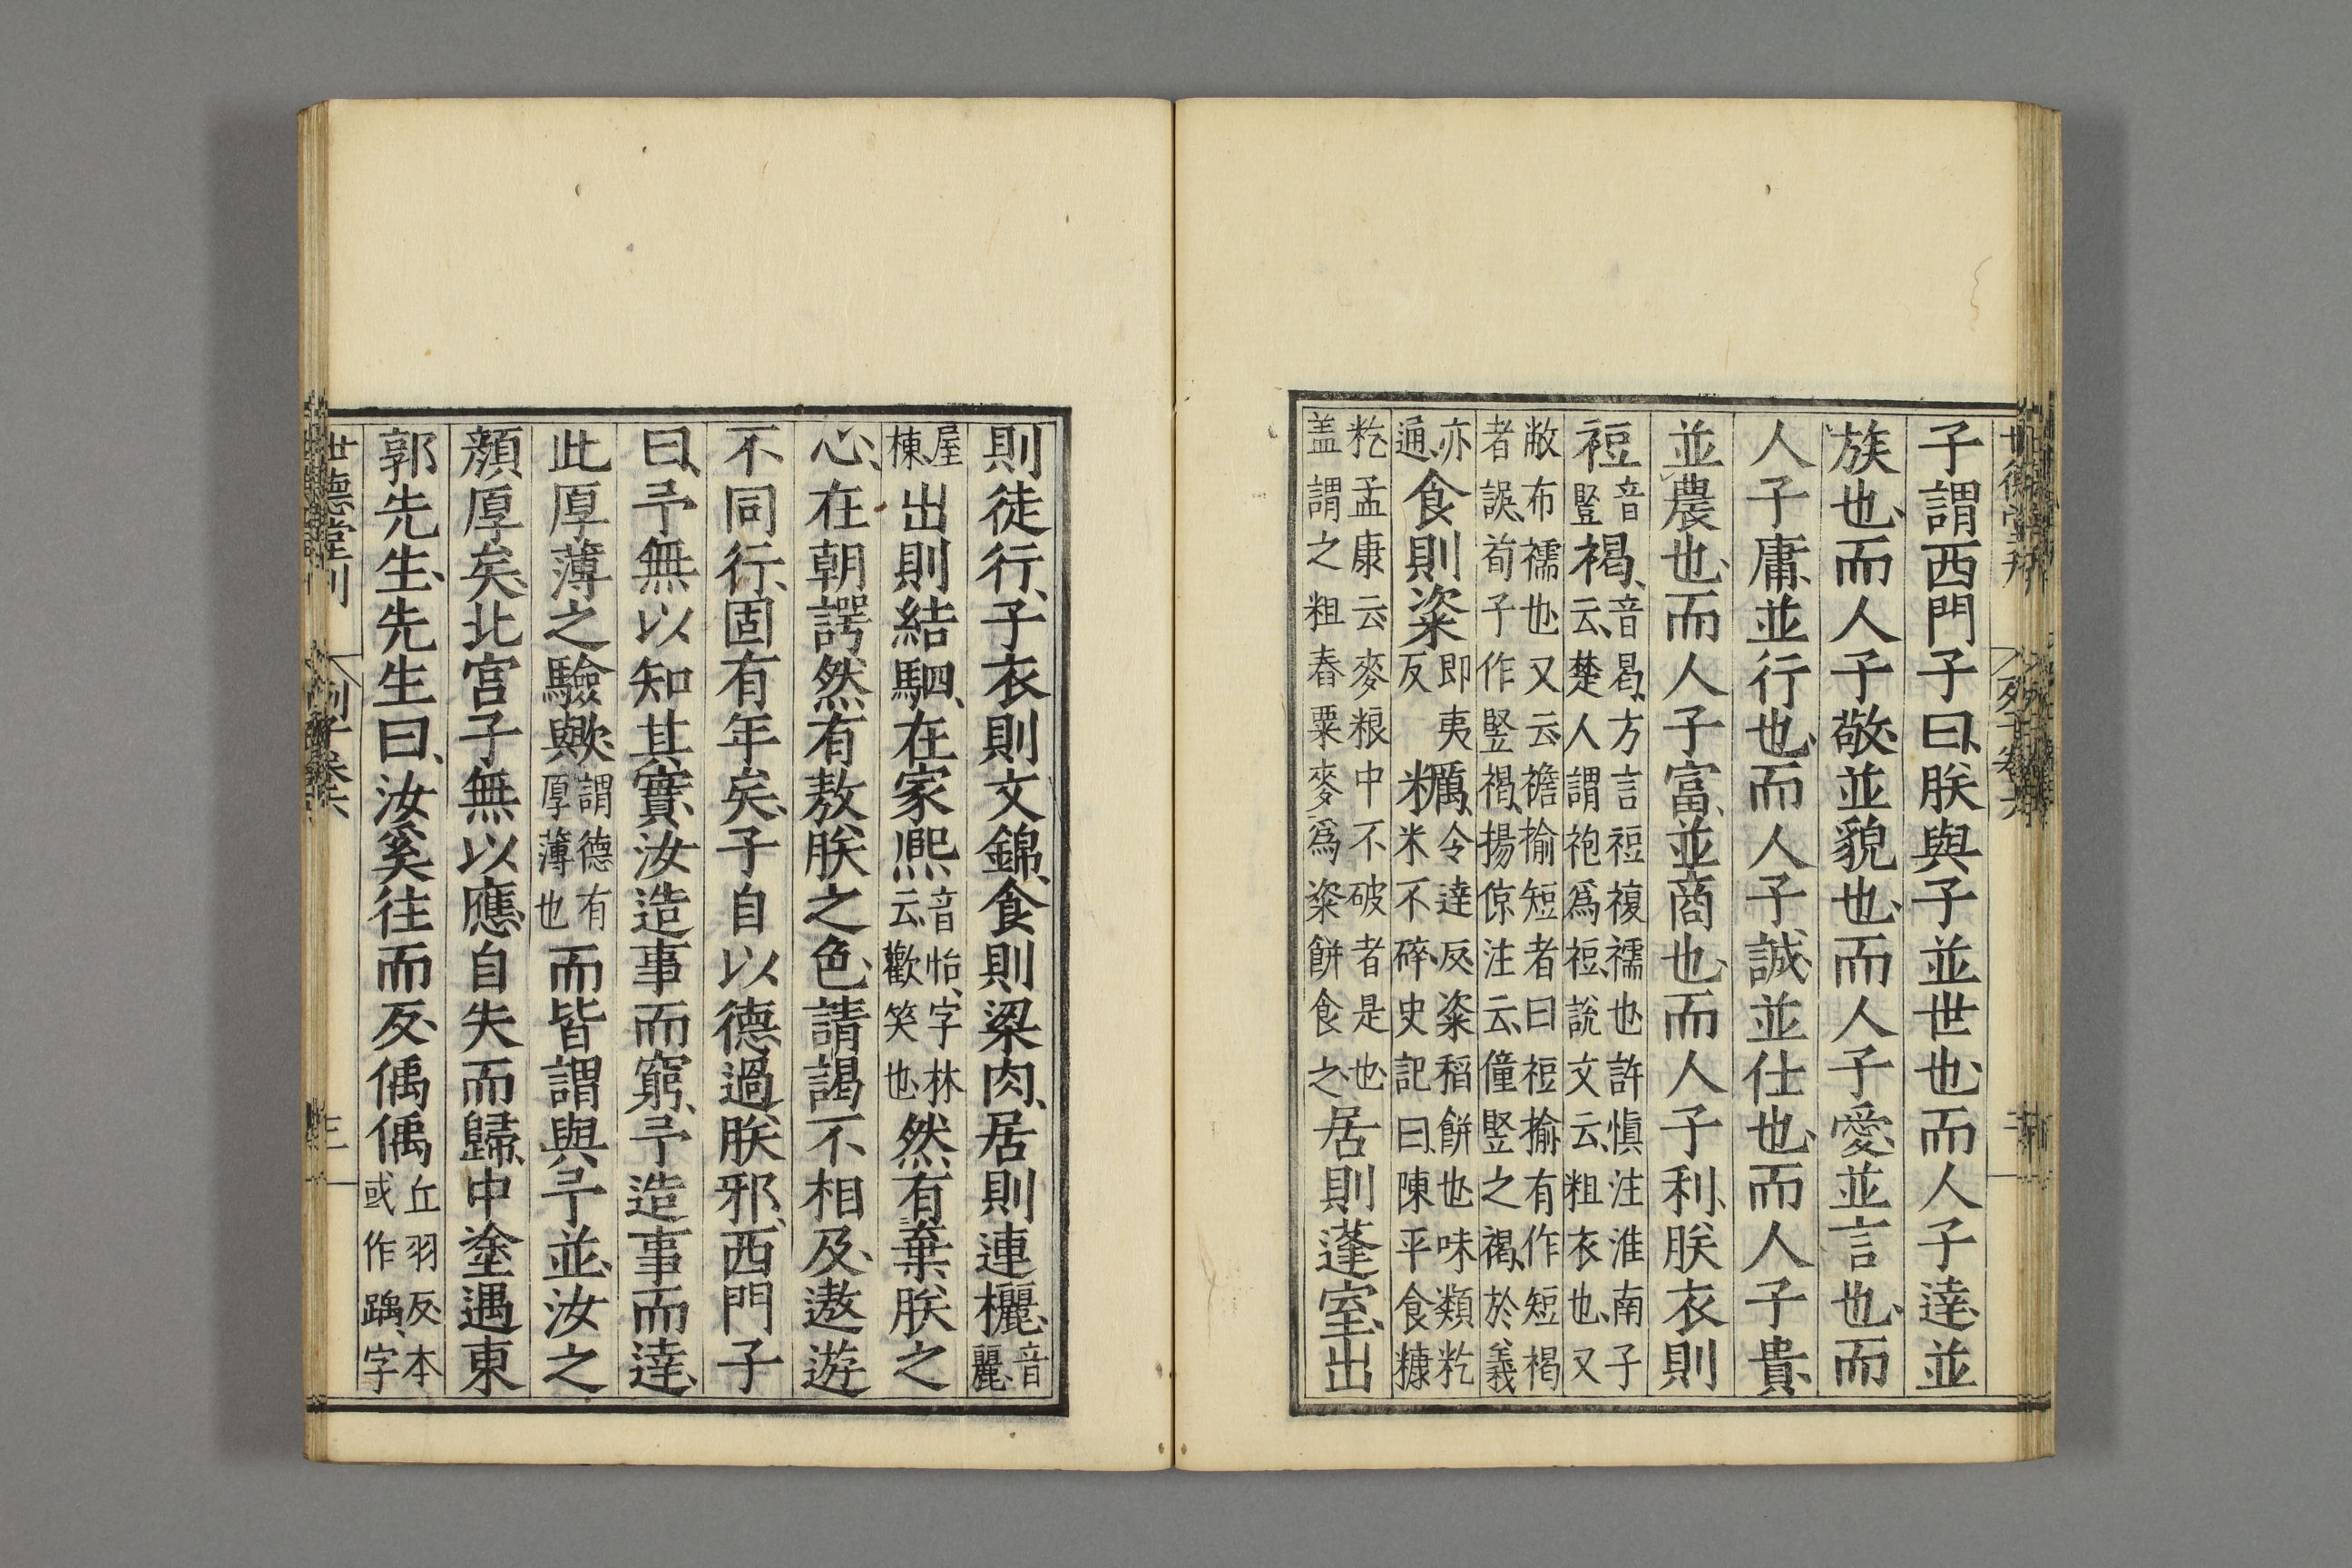 子謂西門子曰、朕與子並世也、而人子達、並
族也、而人子敬、並貌也、而人子愛、並言也、而
人子庸、並行也、而人子誠、並仕也、而人子貴、
並農也、而人子富、並商也、而人子利、朕衣則
裋音豎褐、音曷、方言裋複襦也、許慎注淮南子云、楚人謂袍爲裋、說文云、粗衣也、又
敝布襦也、又云、襜褕短者曰裋褕、有作短褐者、誤、荀子作竪褐、揚倞注云、僮竪之褐、於義
亦通、食則粢即夷反糲、令達反、粢稻餅也、味類籺米不碎、史記曰、陳平食糠
籺、孟康云、麥粮中不破者是也、盖謂之粗舂粟麥爲粢餅食之、居則蓬室、出
則徒行、子衣則文錦、食則梁肉、居則連欐、音麗、
屋棟、出則結駟、在家熙音怡、字林云、歡笑也、然有棄朕之
心、在朝諤然有敖朕之色、請謁不相及、遨遊
不同行、固有年矣、子自以德過朕邪、西門子
曰、予無以知其實、汝造事而窮、予造事而達、
此厚薄之驗歟、謂德有厚薄也而皆謂與予並、汝之
顏厚矣、北宮子無以應、自失而歸、中塗遇東
郭先生、先生曰、汝奚往而反、偊偊丘羽反、本或作踽、字
世德堂刊 列子卷六 三